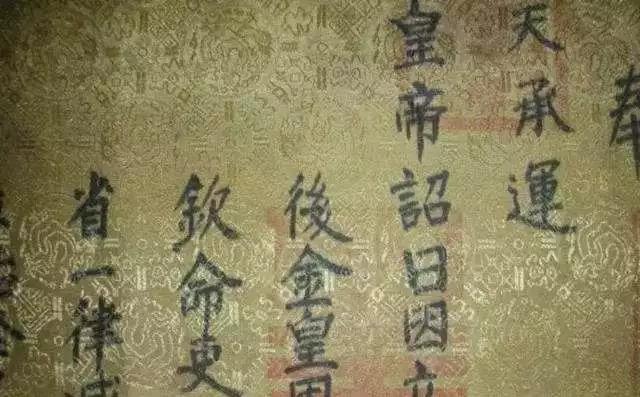 奉
天承運
皇帝詔曰因立
後金皇
欽命吏
省一律減